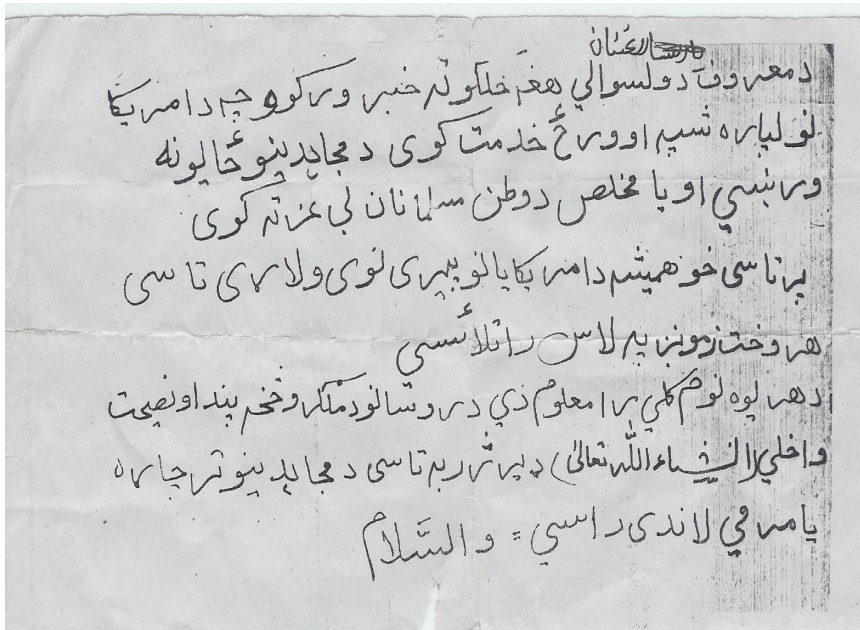 د معروف د ولسوالي هغه خلکو ته خبر ورکوو چه د امریکا
لو لپاره شپه او ورځ خدمت کوی د مجاہدینو ځایونه
ورښسي او یا مخلص د وطن مسلمانان بی عزته کوی
پر تاسی خو همیشه د امریکایانو پیری نوی ولاړی تاسی
هر وخت زمونږ په لاس راتلائسی
د هر یوه نوم کلي رامعلوم دي
پند او نصیحت
واخلي (انشاء الله تعالی) ډیر ژر به تاسی د مجاہدینو تر چاړه
یا مرمي لاندی راسي = والسَّلام